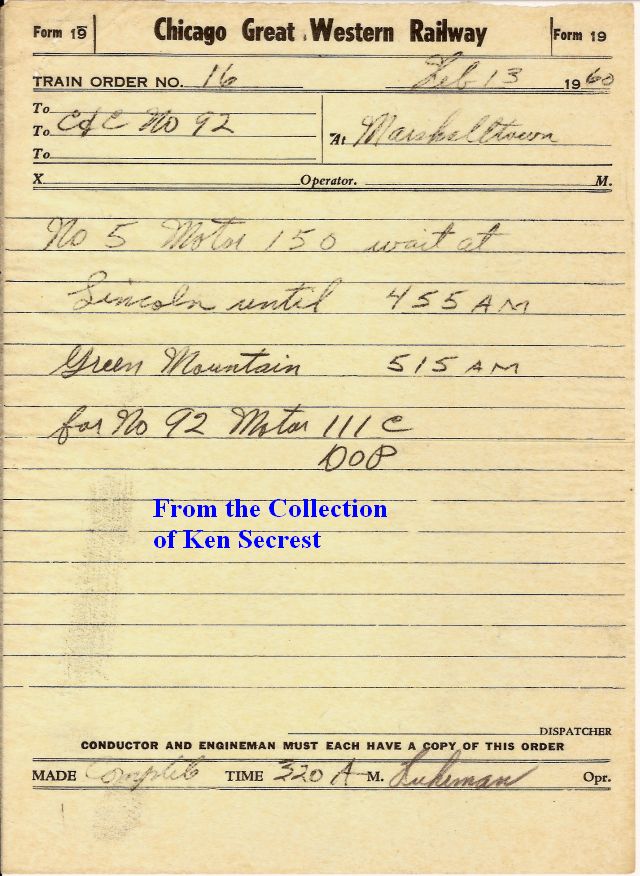 Form 19 Chicago Great Western Railway Form 19
TRAIN ORDER NO. 16 Feb 13 1960
To
To C&C No 92 At Marshalltown
To
X Operator. M.
No 5 Motor 150 wait at
Lincoln until 455 AM
Green Mountain 515 AM
for No 92 Motor 111 C
DOP
From the Collection
of Ken Secrest
DISPATCHER
CONDUCTOR AND ENGINEMAN MUST EACH HAVE A COPY OF THIS ORDER
MADE TIME 320 A M. Opr.